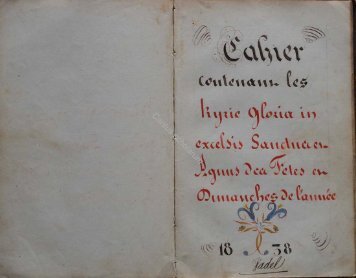 Cahier
contenant les
Kyrie Gloria in
excelsis Sanctus et
Agnus des Fetes et
Dimanches de l'année
18 38
Fadel